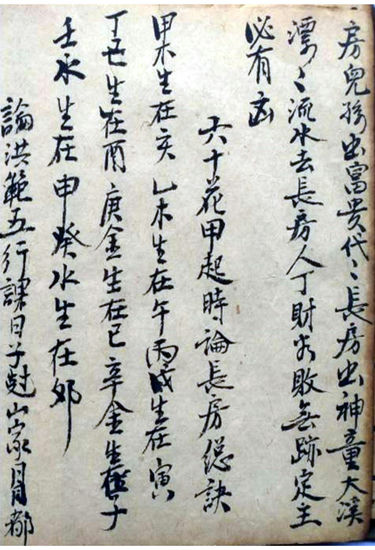 房兒孫出富貴代〻長房出神童大溪
漂〻流水去長房人丁財冨敗無跡定主
必有凶
六十花甲起時論長房總訣
甲木生在亥乙木生在午丙戊生在寅
丁己生在酉庚金生在巳辛金生在子
壬水生在申癸水生在卯
論洪範五行課日子尅山家月月都